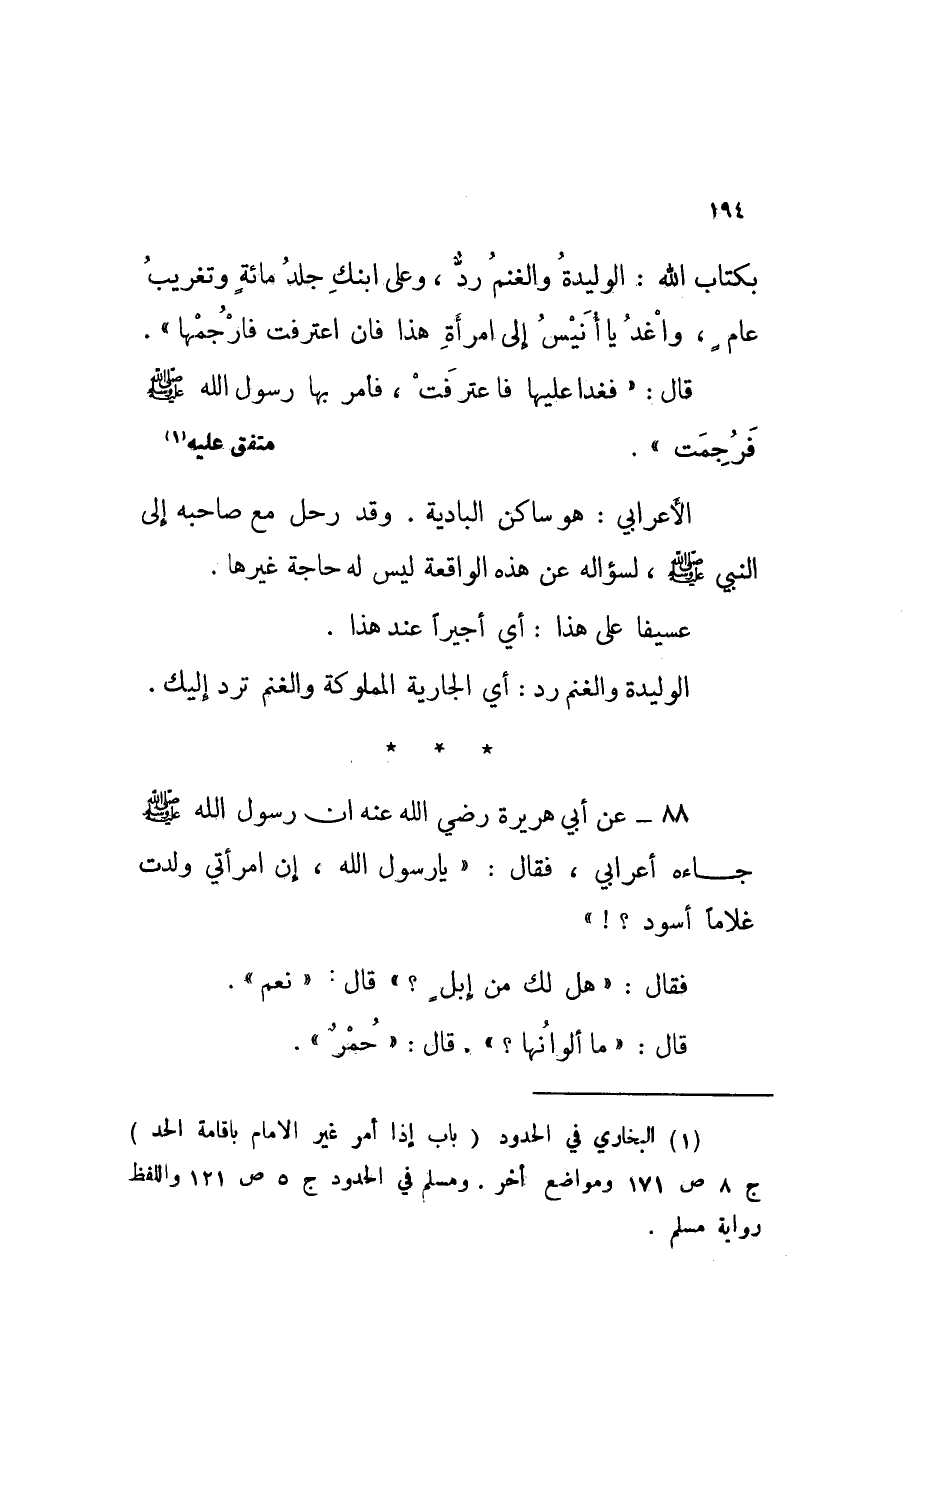 ١٩٤
بكتاب الله : الوليدةُ والغنمُ ردٌّ ، وعلى ابنكِ جلدُ مائةٍ وتغريبُ
عامٍ ، واْغدُ يا أُنَيْسُ إلى امرأةِ هذا فان اعترفت فارْجُمْها » .
قال : « فغدا عليها فاعترَفتْ ، فأمر بها رسول الله ﷺ
فَرُجِمَت » .
متفق عليه (١)
الأعرابي : هو ساكن البادية . وقد رحل مع صاحبه إلى
النبي ﷺ ، لسؤاله عن هذه الواقعة ليس له حاجة غيرها .
عسيفا على هذا : أي أجيراً عند هذا .
الوليدة والغنم رد : أي الجارية المملوكة والغنم ترد إليك .
* * *
٨٨ ـ عن أبي هريرة رضي الله عنه ان رسول الله ﷺ
جاءه أعرابي ، فقال : « يارسول الله ، إن امرأتي ولدت
غلاماً أسود ؟ ! »
فقال : « هل لك من إبلٍ ؟ » قال : « نعم » .
قال : « ما ألوانُها ؟ » . قال : « حُمْرٌ » .
(١) البخاري في الحدود ( باب إذا أمر غير الامام باقامة الحد )
ج ٨ ص ١٧١ ومواضع أخر . ومسلم في الحدود ج ٥ ص ١٢١ واللفظ
رواية مسلم .